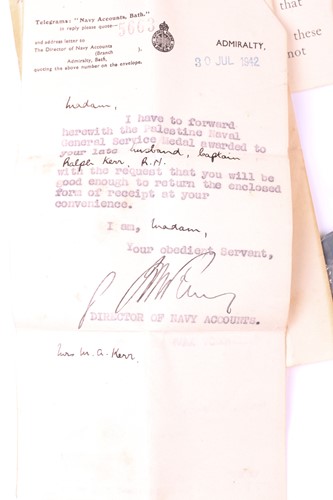 Telegrams: "Navy Accounts, Bath."
In reply please quote
5663
and address letter to
The Director of Navy Accounts
(Branch ),
Admiralty, Bath,
quoting the above number on the envelope.
ADMIRALTY,
30 JUL 1942
Madam,
I have to forward
herewith the Palestine Naval
General Service Medal awarded to
your late husband, Captain
Ralph Kerr, R.N.
with the request that you will be
good enough to return the enclosed
form of receipt at your
convenience.
I am, Madam,
Your obedient Servant,
DIRECTOR OF NAVY ACCOUNTS.
Mrs M. A. Kerr.
that
these
not